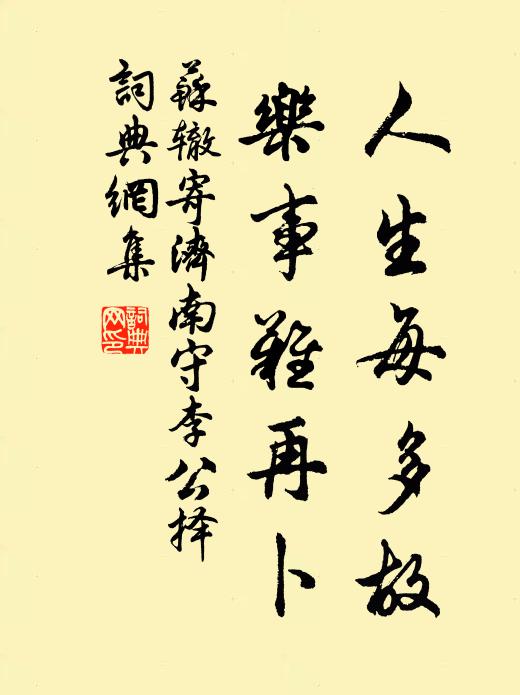 人生每多故
樂事難再卜
蘇轍寄濟南守李公择
詞典網集
詞典
网印